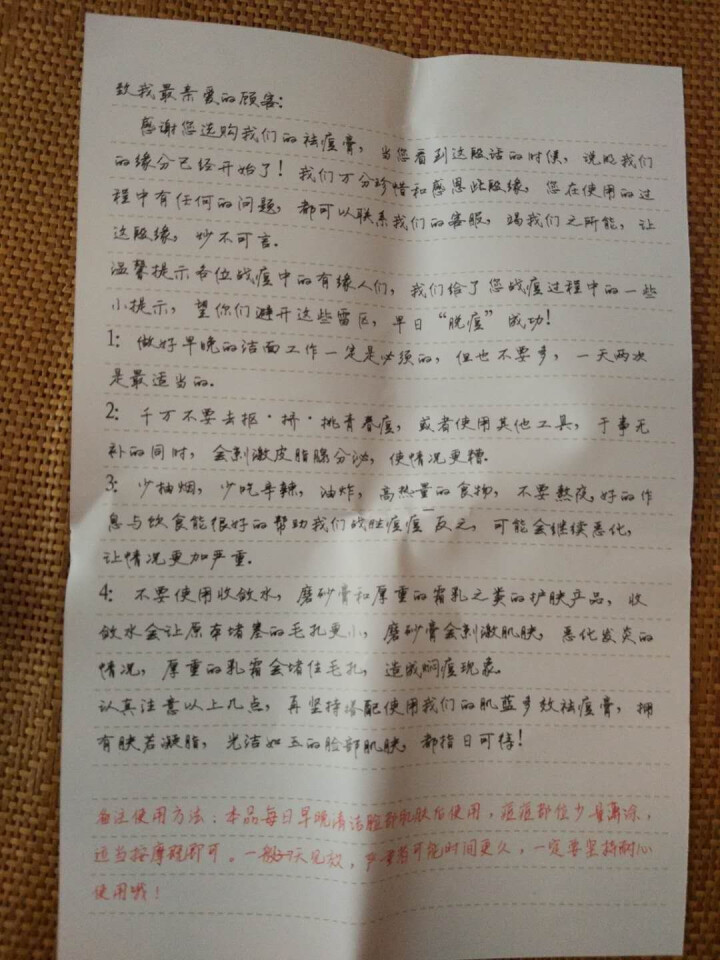 致我最亲爱的顾客:
感谢您选购我们的祛痘膏,当您看到这段话的时候,说明我们
的缘分已经开始了!我们万分珍惜和感恩此段缘,您在使用的过
程中有任何的问题,都可以联系我们的客服,竭我们之所能,让
这段缘,妙不可言.
温馨提示各位战痘中的有缘人们,我们给了您战痘过程中的一些
小提示,望你们避开这些雷区,早日“脱痘”成功!
1: 做好早晚的洁面工作一定是必须的,但也不要多,一天两次
是最适当的.
2: 千万不要去抠·挤·挑青春痘,或者使用其他工具,于事无
补的同时,会刺激皮脂腺分泌,使情况更糟.
3: 少抽烟,少吃辛辣,油炸,高热量的食物,不要熬夜,好的作
息与饮食能很好的帮助我们战胜痘痘 反之,可能会继续恶化,
让情况更加严重.
4: 不要使用收敛水,磨砂膏和厚重的霜乳之类的护肤产品,收
敛水会让原本堵塞的毛孔更小,磨砂膏会刺激肌肤,恶化发炎的
情况,厚重的乳霜会堵住毛孔,造成闷痘现象
认真注意以上几点,再坚持搭配使用我们的肌蓝多效祛痘膏,拥
有肤若凝脂,光洁如玉的脸部肌肤,都指日可待!
备注使用方法:本品每日早晚清洁脸部肌肤后使用,痘痘部位少量薄涂,
适当按摩即可。一般 天见效,严重者可能时间更久,一定要坚持耐心
使用哦!